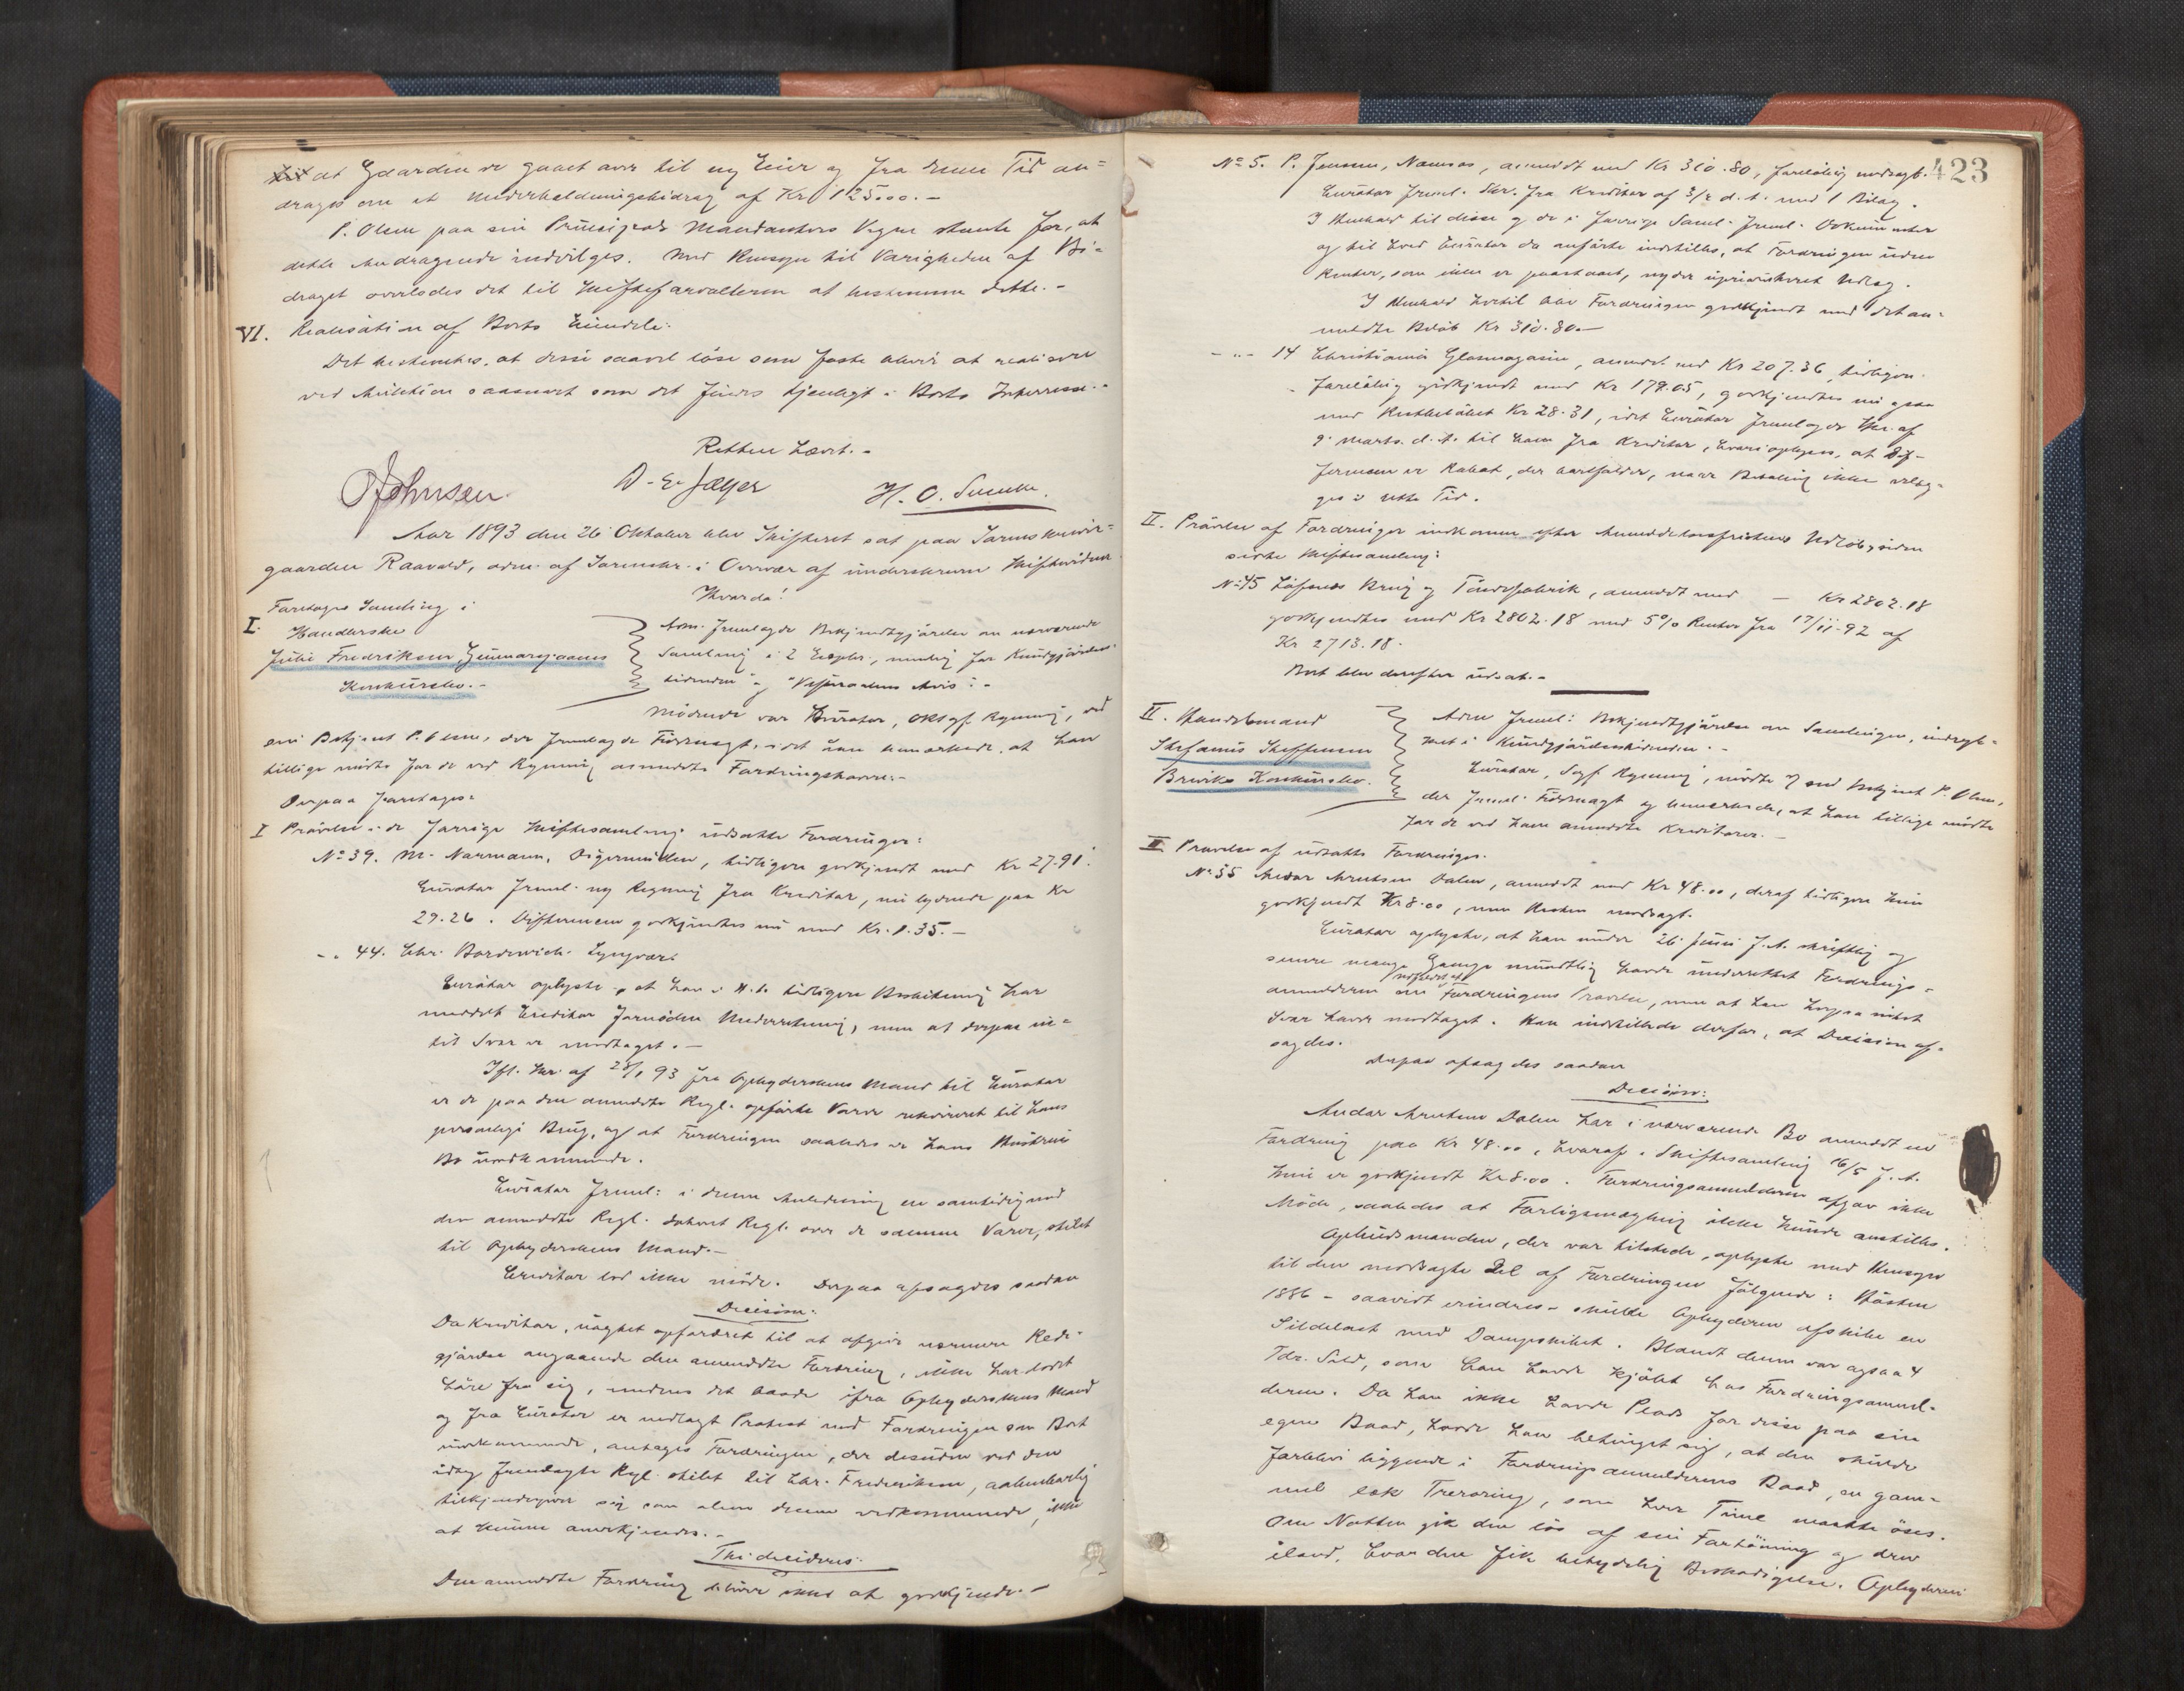 at Gaarden er gaaet over til ny Eier og fra denne Tid an=
drages om et Underholdningsbidrag af Kr 125.00.-
P. Olsen paa sin Principals Mandanters Vegne stemte for, at
dette Andragende indvilges. Med Hensyn til Varigheden af Bi=
draget overlodes det til Skifteforvalteren at bestemme dette.-
VI. Realisation af Boets Eiendele:
Det bestemtes, at disse saavel löse som faste bliver at realisere
ved Auktion saasnart som det findes tjenligt i Boets Interesse.-
Retten hævet.-
OJohnsen. D. E. Jæger H. O.
Aar 1893 den 26 Oktober blev Skifteret sat paa Sorenskriver=
gaarden Raavold, adm. af Sorenskr. i Overvær af underskrevne Skiftevidner
Hvorda:
Foretages Samling i
I. Handlerske
Julie Fredriksen
Konkursbo.-
Adm. fremlagde Bekjendtgjörelse om nærværende
Samling i 2 Expl., nemlig for Kundgjörelses-
tidenden" og "Vesteraalens Avis".-
Mödende var Kurator, Oksgf. Rynning, ved
sin Betjent P. Olsen, der fremlagde Fuldmagt, idet han bemærkede, at han
tillige mödte for de ved Rynning anmeldte Fordringshavere.-
Derpaa foretages:
I Prövelse i de forrige Skiftesamling udsatte Fordringer:
No 39. M. Normann, Digermulen, tidligere godkjendt med Kr 27.91.
Kurator freml. ny Regning fra Kreditor, nu lydende paa Kr
29.26. Differencen godkjendtes nu med Kr. 1.35.-
-„ 44. Chr. Bordewich. Lyngvær:
Curator oplyste, at han i H. t. tidligere Beslutning har
meddelt Creditor fornöden Underretning, men at derpaa in=
tet Svar er modtaget.-
Ifl. Skr. af 28/1 93 fra Opbyderskens Mand til Curator
er de paa den anmeldte Regl. opförte Varer rekvireret til hans
personlige Brug, og at Fordringen saaledes er hans Hustrus
Bo uvedkommende.
Curator freml: i denne Anledning en samtidig med
den anmeldte Regl. dateret Regl. over de samme Varer, stilet
til Opbyderskens Mand.-
Creditor lod ikke möde. Derpaa afsagdes saadan
Decision:
Da Kreditor, uagtet opfordret til at afgive nærmere Rede=
gjörelse angaaende den anmeldte Fordring, ikke har ladet
höre fra sig, medens det baade ifra Opbyderskens Mand
og fra Curator er nedlagt Protest mod Fordringen som Boet
uvedkommende, antages Fordringen, der desuden ved den
idag fremlagte Regl. stilet til Chr. Fredriksen, aabenbarlig
tilkjendegiver sig som alene denne vedkommende, ikke
at kunne anerkjendes.-
Thi decideres:
Den anmeldte Fordring bliver ikke at godkjende.-
423
No 5. P. Jensen, Namsos, anmeldt med Kr 310.80, foreløbig modsagt.
Curator freml. Skr. fra Kreditor af 3/2 d. A. med 1 Bilag.
I Henhold til disse og de i forrige Saml. freml. Dokumenter
og til hvad Curator da anförte indstilles, at Fordringen uden
Renter, som ikke er paastaaet, nyder uprioriteret Udlæg.
I Henhold hertil blev Fordringen godkjendt med det an=
meldte Belöb Kr 310.80.-
-„- 14 Christiania Glasmagasin, anmeldt med Kr 207.36, tidligere
forelöbig godkjendt med Kr 179.05, godkjendtes nu ogsaa
med Restbelöbet Kr 28.31, idet Curator fremlagde Skr. af
9. Marts d. A. til ham fra Kreditor, hvori oplyses, at Dif=
ferencen er Rabat, der bortfalder, naar Betaling ikke erlæg=
ges i rette Tid.
II. Prövelse af Fordringer indkomne efter Anmeldelsesfristens Udlöb siden
sidste Skiftesamling:
No 45 Löfsnæs Brug og Tøndefabrik, anmeldt med — Kr 2802.18
godkjendtes med Kr 2802.18 med 5% Renter fra 17/11-92 af
Kr 2713.18.
Boet blev derefter udsat.-
II. Handelsmand
Stefanus Steffensen
Breviks Konkursbo.
Adm freml: Bekjendtgjörelse om Samlingen, indryk=
ket i Kundgjörelsestidenden.-
Curator, Sagf. Rynning, mödte ved Betjent P. Olsen,
der freml. Fuldmagt og bemærkede, at han tillige mödte
for de ved ham anmeldte Kreditorer.-
I Prövelse af udsatte Fordringer.
No 35 Andor Arntsen Dalen, anmeldt med Kr 48.00, deraf tidligere kun
godkjendt Kr 8.00, men Resten modsagt.
Curator oplyste, at han under 26. Juni f. A. skriftlig og
senere mange Gange mundtlig havde underrettet Fordrings=
anmelderen om Udfaldet af Fordringens Prövelse, men at han herpaa intet
Svar havde modtaget. Han indstillede derfor, at Decision af=
sagdes.
Derpaa afsagdes saadan
Decision:
Andor Arntsen Dalen har i nærværende Bo anmeldt en
Fordring paa Kr 48.00, hvoraf i Skiftesamling 16/5 f. A.
kun er godkjendt Kr 8.00. Fordringsanmelderen afgav ikke
Möde, saaledes at Forligsmægling ikke kunde anstilles.
Opbudsmanden, der var tilstede, oplyste med Hensyn
til den modsagte Del af Fordringen fölgende: Hösten
1886 - saavidt erindres - skulde Opbyderen afskibe en
Sildelast med Dampskibet. Blandt denne var ogsaa 4
Tdr. Sild, som han havde kjöbt hos Fordringsanmel=
deren. Da han ikke havde Plads for disse paa sin
egen Baad, havde han betinget sig, at den skulde
forblive liggende i Fordringsanmelderens Baad, en gam=
mel læk Treroring, som hver Time maatte öses.
Om Natten gik den lös af sin Fortöining og drev
iland, hvor den fik betydelig Beskadigelse. Opbyderen